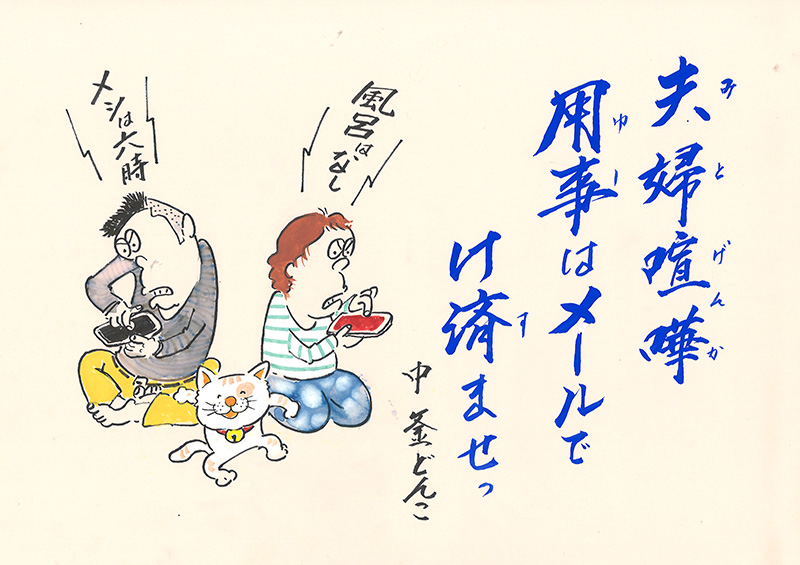 夫婦喧嘩
みとげんか
用事はメールで
ゆーし
け済ませっ
す
中 釜どんこ
風呂はなし
メシは六時